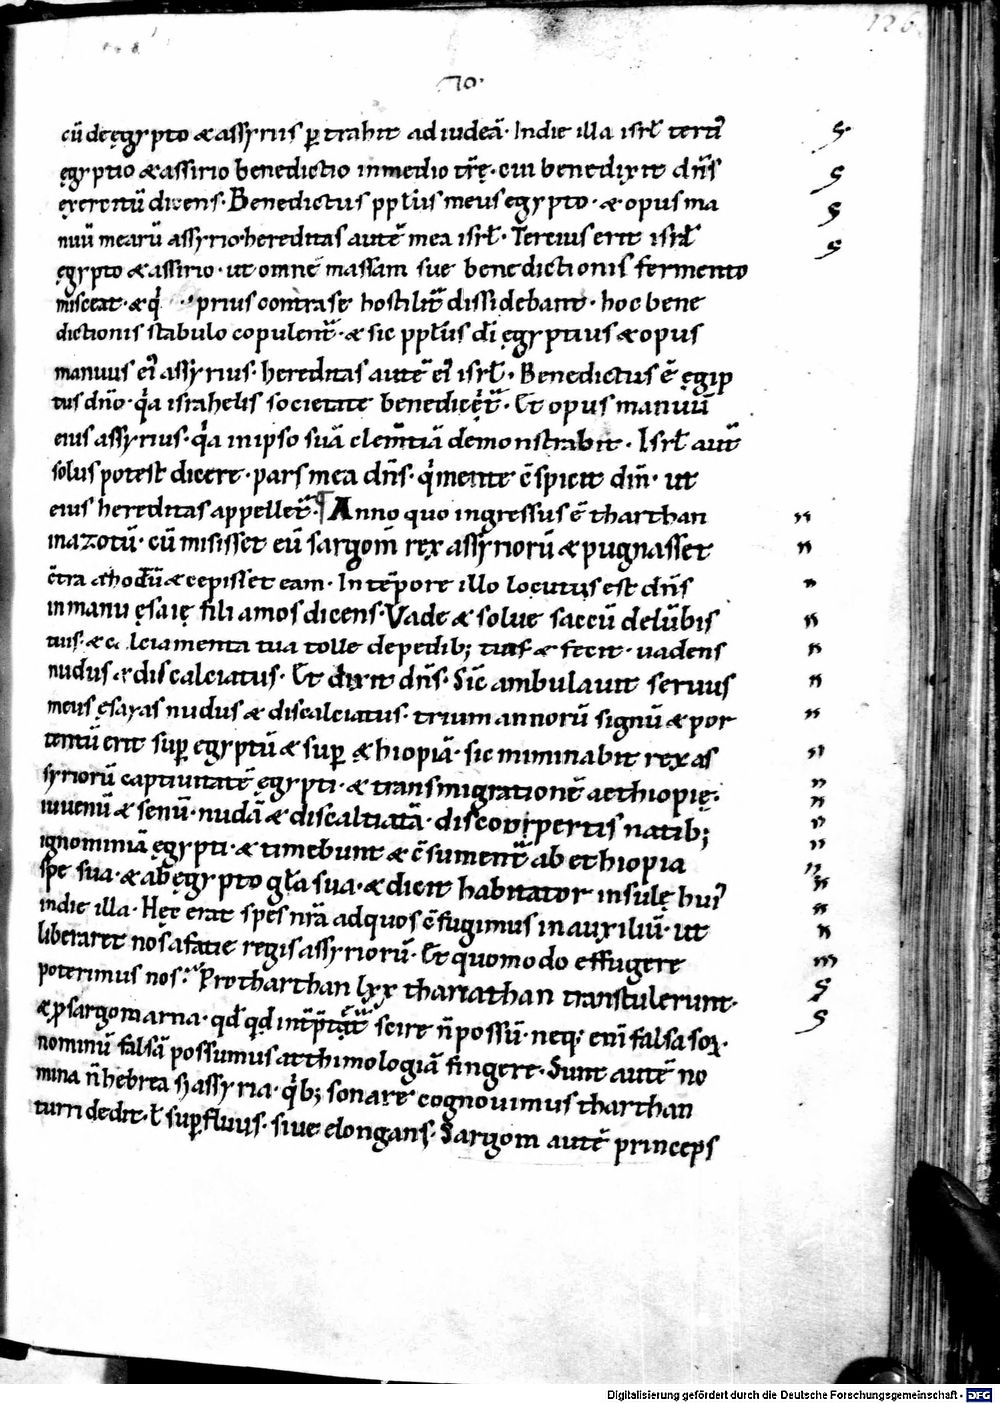 126
70.
cū de ęgypto & assyriis ꝑtrahit ad iudeā. Indie illa isrł terti᷒
ęgyptio & assirio benedictio inmedio tr̄ę. cui benedixit dn̄s
exercituū dicens. Benedictus ppl̄us meus egypto. & opus ma
nuū mearū assyrio. hereditas autē mea isrł. Tercius erit isrł
ęgypto & assirio. ut omnē massam suę benedictionis fermento
misceat. & q̍ prius contra se hostilit̄ dissidebant. hoc bene
dictionis stabulo copulent̄. & sic ppl̄us dī ęgyptius & opus
manuus ei᷒ assyrius. hereditas autē ei᷒ isrł. Benedictus ē ęgip
tus dn̄o. q̍a israhelis societate benediceṯ̄. Et opus manuū
eius assyrius. q̍a in ipso suā clem̄tiā demonstrabit. Isrł aut̄
solus potest dicere. pars mea dn̄s. q̍ mente c̄spicit dm̄. ut
eius hereditas appellet̄. Anno quo ingressus ē tharthan
in azotū. cū misisset eū sargom̄ rex assyriorū & pugnasset
c̄tra azhodū & cepisset eam. In tēpore illo locutus est dn̄s
in manu ęsaię filii amos dicens. Vade & solue saccū delūbis
tuis. & calciamenta tua tolle de pedib; tuis & fecit. uadens
nudus & discalciatus. Et dixit dn̄s. Sic̄ ambulauit seruus
meus ęsayas nudus & discalciatus. trium annorū signū & por
tentū erit suꝑ egyptū & suꝑ ęthiopiā. sic minabit rex as
syriorū captiuitatē ęgypti. & transmigrationē aethiopię.
iuuenū & senū. nudā & discaltiatā. discoopertis natib;
ignominiā ęgypti. & timebunt & c̄fument̄ ab ethiopia
spe sua. & ab ęgypto gl̄a sua. & dicit habitator insulę hui᷒
indie illa. Hec erat spes nr̄a ad quos c̄fugimus in auxiliū. ut
liberaret nos a facie regis assyriorū. Et quomodo effugere
poterimus nos. Pro tharthan lxx thanathan transtulerunt.
& ꝓ sargom arna. qd̄ qd̄ int̄p̄tet̄ scire n̄ possū. neq; eni falsa soꝝ.
nominū falsā possumus aethimologiā fingere. Sunt autē no
mina n̄ hebrea sꝫ assyria. q̍b; sonare cognouimus tharthan
turri dedit. ł suꝑfluus. siue elongans. Sargom autē princeps
Digitalisierung gefördert durch die Deutsche Forschungsgemeinschaft - DFG